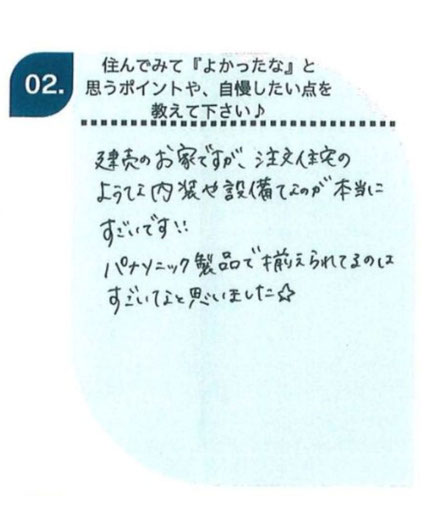 02.
住んでみて『よかったな』と
思うポイントや、自慢したい点を
教えて下さい♪
建売のお家ですが、注文住宅の
ような内装や設備なのが本当に
すごいです!!
パナソニック製品で揃えられてるのは
すごいなと思いました☆